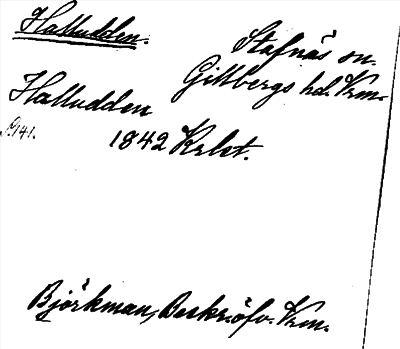 Halludden.
Stafnäs sn.
Gillbergs hd. Vrm.
Halludden
s. 141.
1842 Krlst.
Björkman, Beskr. öfv. Vrm.